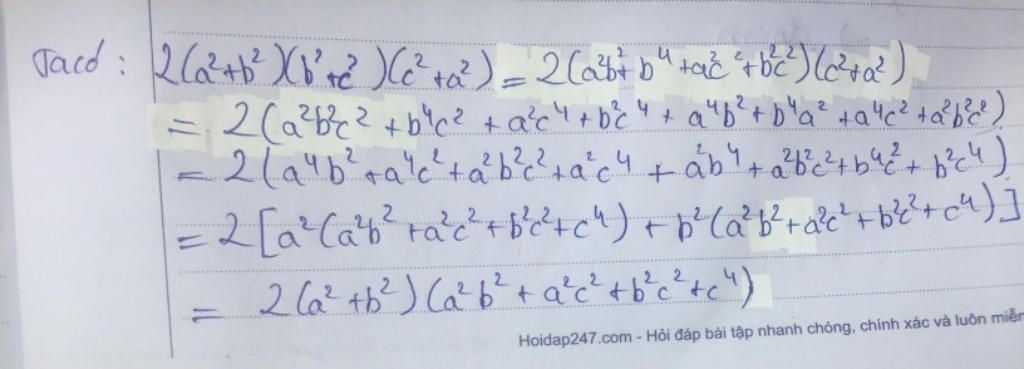 Ta có : 2(a²+b²)(b²+c²)(c²+a²) = 2(a²b²+b⁴+a²c²+b²c²)(c²+a²)
= 2(a²b²c² + b⁴c² + a²c⁴ + b²c⁴ + a⁴b² + b⁴a² + a⁴c² + a²b²c²)
= 2(a⁴b² + a⁴c² + a²b²c² + a²c⁴ + a²b⁴ + a²b²c² + b⁴c² + b²c⁴)
= 2[a²(a²b² + a²c² + b²c² + c⁴) + b²(a²b² + a²c² + b²c² + c⁴)]
= 2(a² + b²)(a²b² + a²c² + b²c² + c⁴)
Hoidap247.com - Hỏi đáp bài tập nhanh chóng, chính xác và luôn miễn